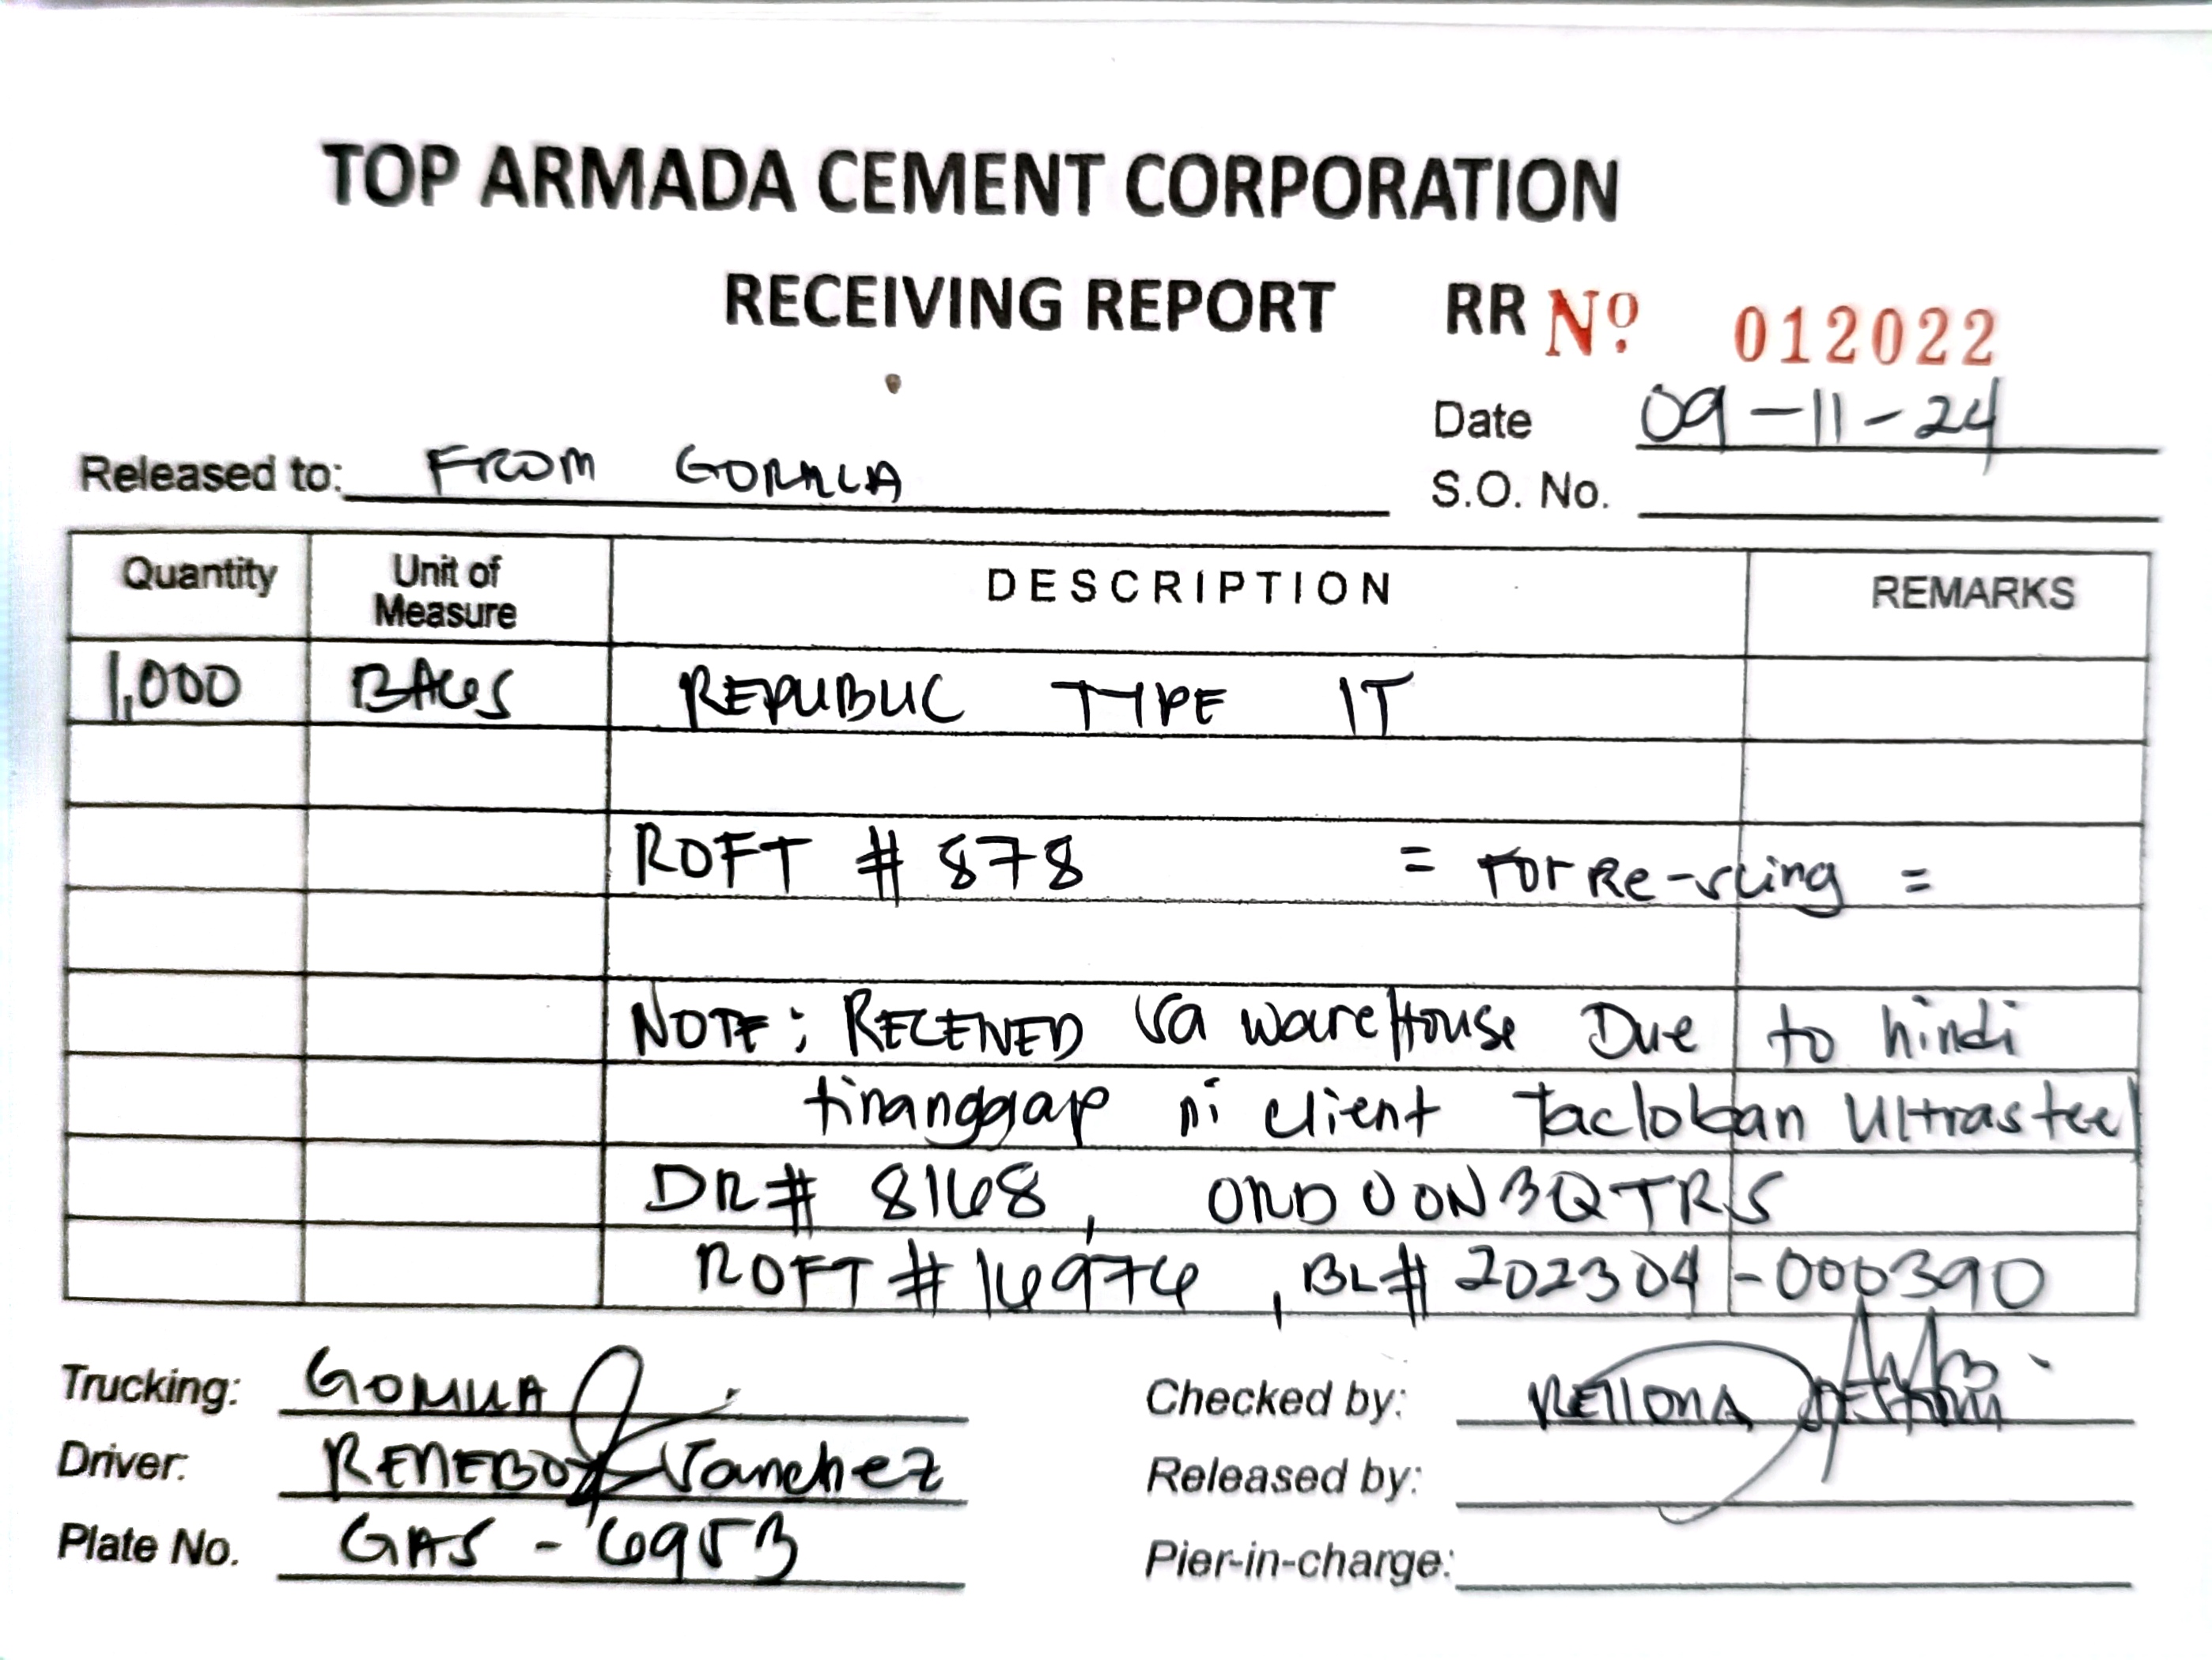 TOP ARMADA CEMENT CORPORATION
RECEIVING REPORT RR Nº 012022
Date 09-11-24
Released to: FROM GORILLA
S.O. No.
Quantity Unit of Measure DESCRIPTION REMARKS
1,000 BAGS REPUBLIC TYPE 1T
ROFT # 878 = For Re-sling =
NOTE: RECEIVED sa wareHouse Due to hindi
tinanggap ni client Tacloban Ultrasteel
DR# 8168, 3QTRS
ROFT # 16976, BL# 202304-000390
Trucking: GORILLA
Checked by:
Driver: RENEBOY Sanchez
Released by:
Plate No. GAS - 6953
Pier-in-charge: